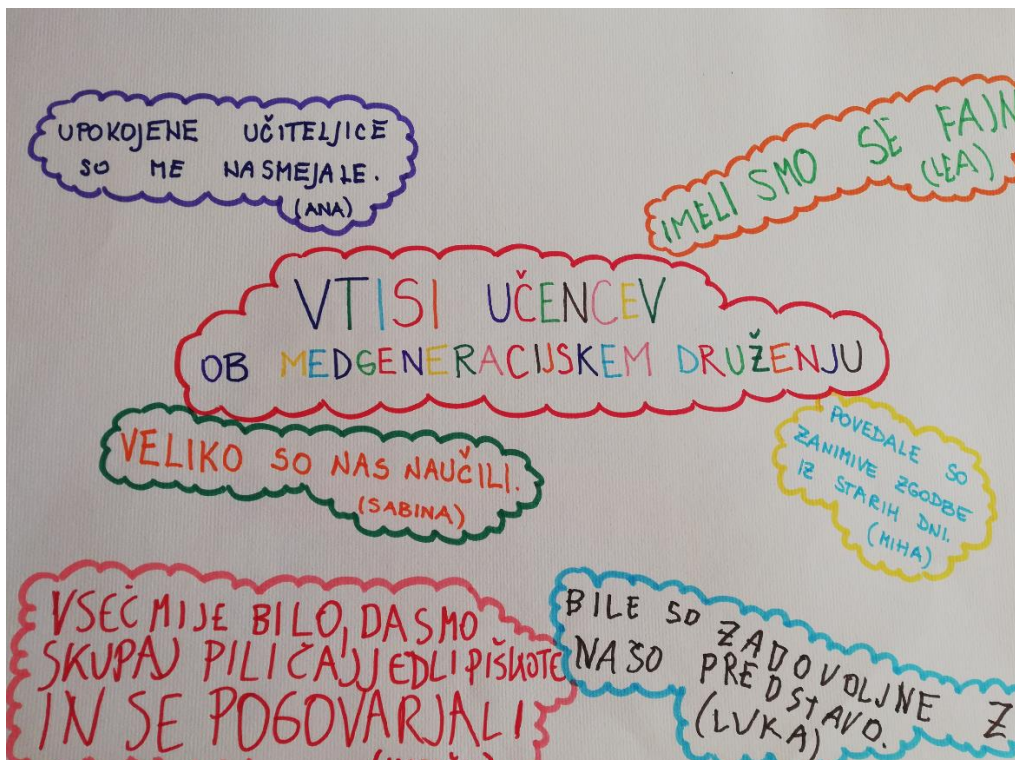 UPOKOJENE UČITELJICE
SO ME NASMEJALE.
(ANA)
IMELI SMO SE FAJN
(LEA)
VTISI UČENCEV
OB MEDGENERACIJSKEM DRUŽENJU
VELIKO SO NAS NAUČILI.
(SABINA)
POVEDALE SO
ZANIMIVE ZGODBE
IZ STARIH DNI.
(MIHA)
VSEČ MI JE BILO, DA SMO
SKUPAJ PILI ČAJ, JEDLI PIŠKOTE
IN SE POGOVARJALI
BILE SO ZADOVOLJNE Z
NAŠO PREDSTAVO.
(LUKA)